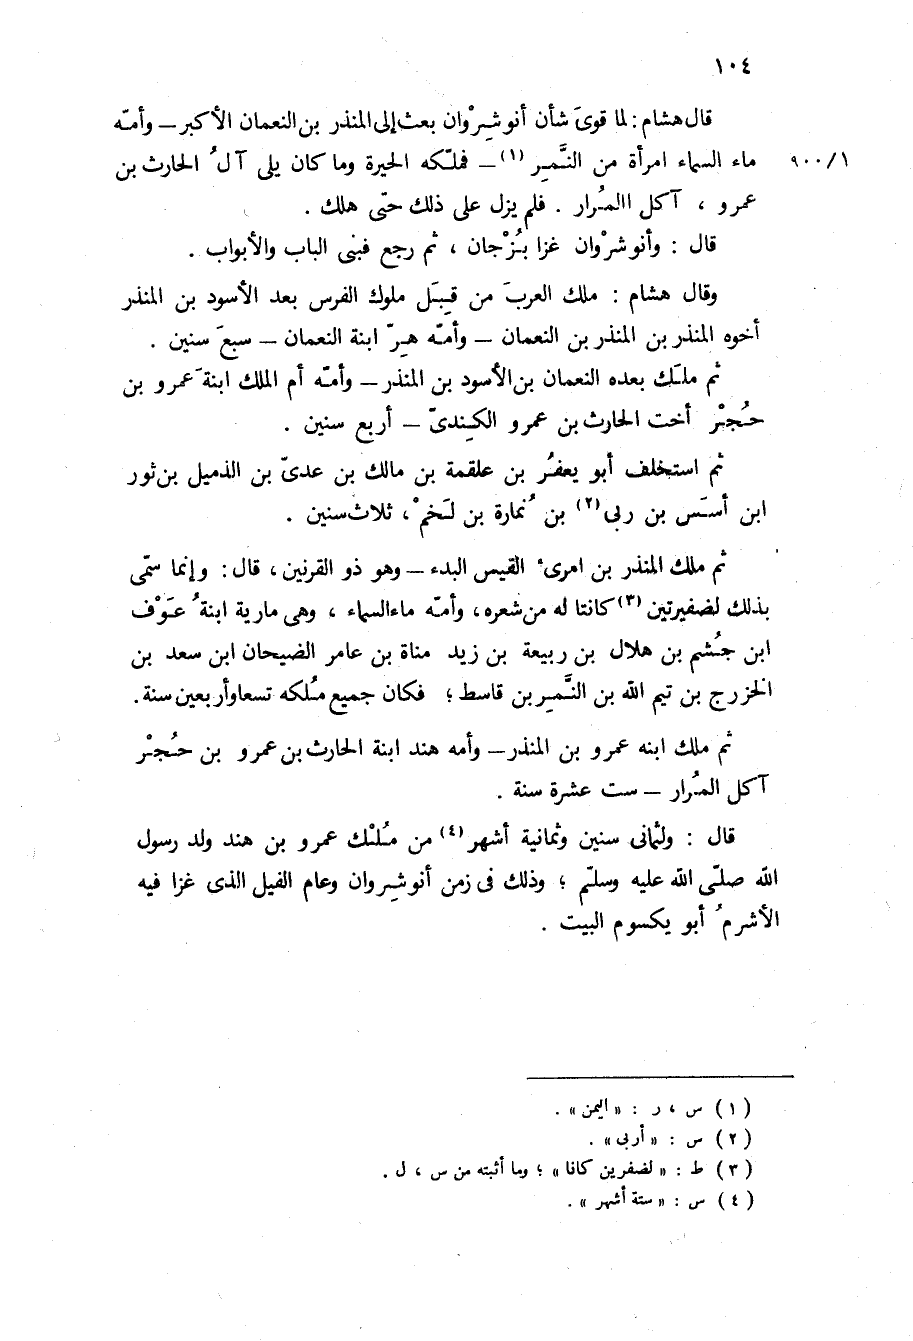 ١٠٤
قال هشام: لما قوىَ شأن أنو شِرْوان بعث إلى المنذر بن النعمان الأكبر – وأمّه
٩٠٠/١ ماء السماء امرأة من النَّمِر (١) – فملّكه الحيرة وما كان يلى آلُ الحارث بن
عمرو ، آكل االمُرار . فلم يزل على ذلك حتّى هلك .
قال : وأنو شرْوان غزا بُرْجان ، ثم رجع فبنى الباب والأبواب .
وقال هشام : ملك العربَ من قِبَل ملوك الفرس بعد الأسود بن المنذر
أخوه المنذر بن المنذر بن النعمان – وأمّه هِرّ ابنة النعمان – سبعَ سنين .
ثم ملَك بعده النعمان بن الأسود بن المنذر – وأمّه أم الملك ابنةَ عمرو بن
حُجْر أخت الحارث بن عمرو الكِندىّ – أربع سنين .
ثم استخلف أبو يعفُر بن علقمة بن مالك بن عدىّ بن الذميل بن ثور
ابن أسَس بن ربى (٢) بن نُمارة بن لَخمْ ، ثلاث سنين .
ثم ملك المنذر بن امرئ القيس البدء – وهو ذو القرنين ، قال : وإنما سمّى
بذلك لضفيرتين (٣) كانتا له من شعره ، وأمّه ماء السماء ، وهى مارية ابنةُ عَوْف
ابن جُشم بن هلال بن ربيعة بن زيد مناة بن عامر الضيحان ابن سعد بن
الخزرج بن تيم الله بن النَّمِر بن قاسط ؛ فكان جميع مُلكه تسعا وأربعين سنة .
ثم ملك ابنه عمرو بن المنذر – وأمه هند ابنة الحارث بن عمرو بن حُجْر
آكل المُرار – ست عشرة سنة .
قال : ولثمانى سنين وثمانية أشهر (٤) من مُلْك عمرو بن هند ولد رسول
الله صلّى الله عليه وسلّم ؛ وذلك فى زمن أنو شِروان وعام الفيل الذى غزا فيه
الأشرمُ أبو يكسوم البيت .
(١) س ، ر : « اليمن » .
(٢) س : « أربى » .
(٣) ط : « لضفرين كافا » ؛ وما أثبته من س ، ل .
(٤) س : « ستة أشهر » .